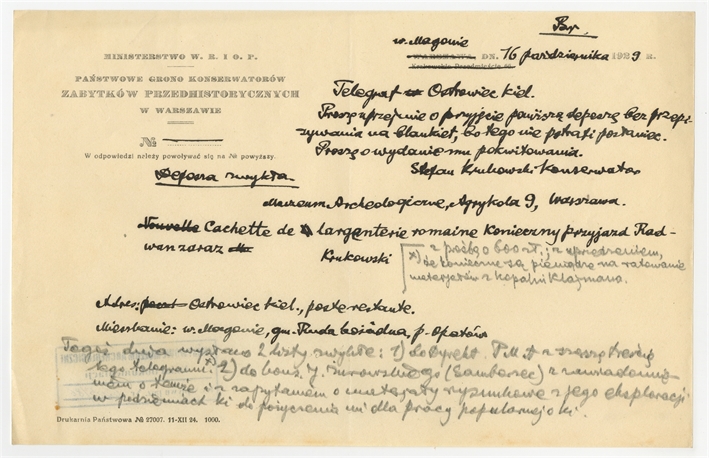 Bar.
MINISTERSTWO W. R. I O. P.
PAŃSTWOWE GRONO KONSERWATORÓW
ZABYTKÓW PRZEDHISTORYCZNYCH
W WARSZAWIE
№
W odpowiedzi należy powoływać się na № powyższy.
w. Magonie
WARSZAWA, DN. 16 października 1929 R.
Krakowskie Przedmieście 66
Telegraf Ostrowiec kiel.
Proszę uprzejmie o przyjęcie poniższej depeszy bez przepi-
sywania na blankiet, bo tego nie potrafi posłaniec.
Proszę o wydanie mu pokwitowania.
Stefan Krukowski konserwator
Depesza zwykła
Muzeum Archeologiczne, Agrykola 9, Warszawa.
Nouvelle Cachette de l'argenterie romaine konieczny przyjazd Rad-
wan zaraz
Krukowski
z prośbą o 600 zł. i z uprzedzeniem,
że konieczne są pieniądze na ratowanie
materjałów z kopalni Klajmana.
Adres: Ostrowiec kiel., poste restante.
Mieszkanie: w. Magonie, gm. Ruda Kościelna, p. Opatów
Tegoż dnia wysłano 2 listy zwykłe: 1) do Dyrekt. P.M.A z treścią
tego telegramu x) 2) do kons. J. Żurowskiego (Sambórzec) z zawiadomie-
niem o temże i z zapytaniem o materjały rysunkowe z jego eksploracji
do pożyczenia mi dla pracy popularnej o ki.
Drukarnia Państwowa № 27007. 11-XII 24. 1000.